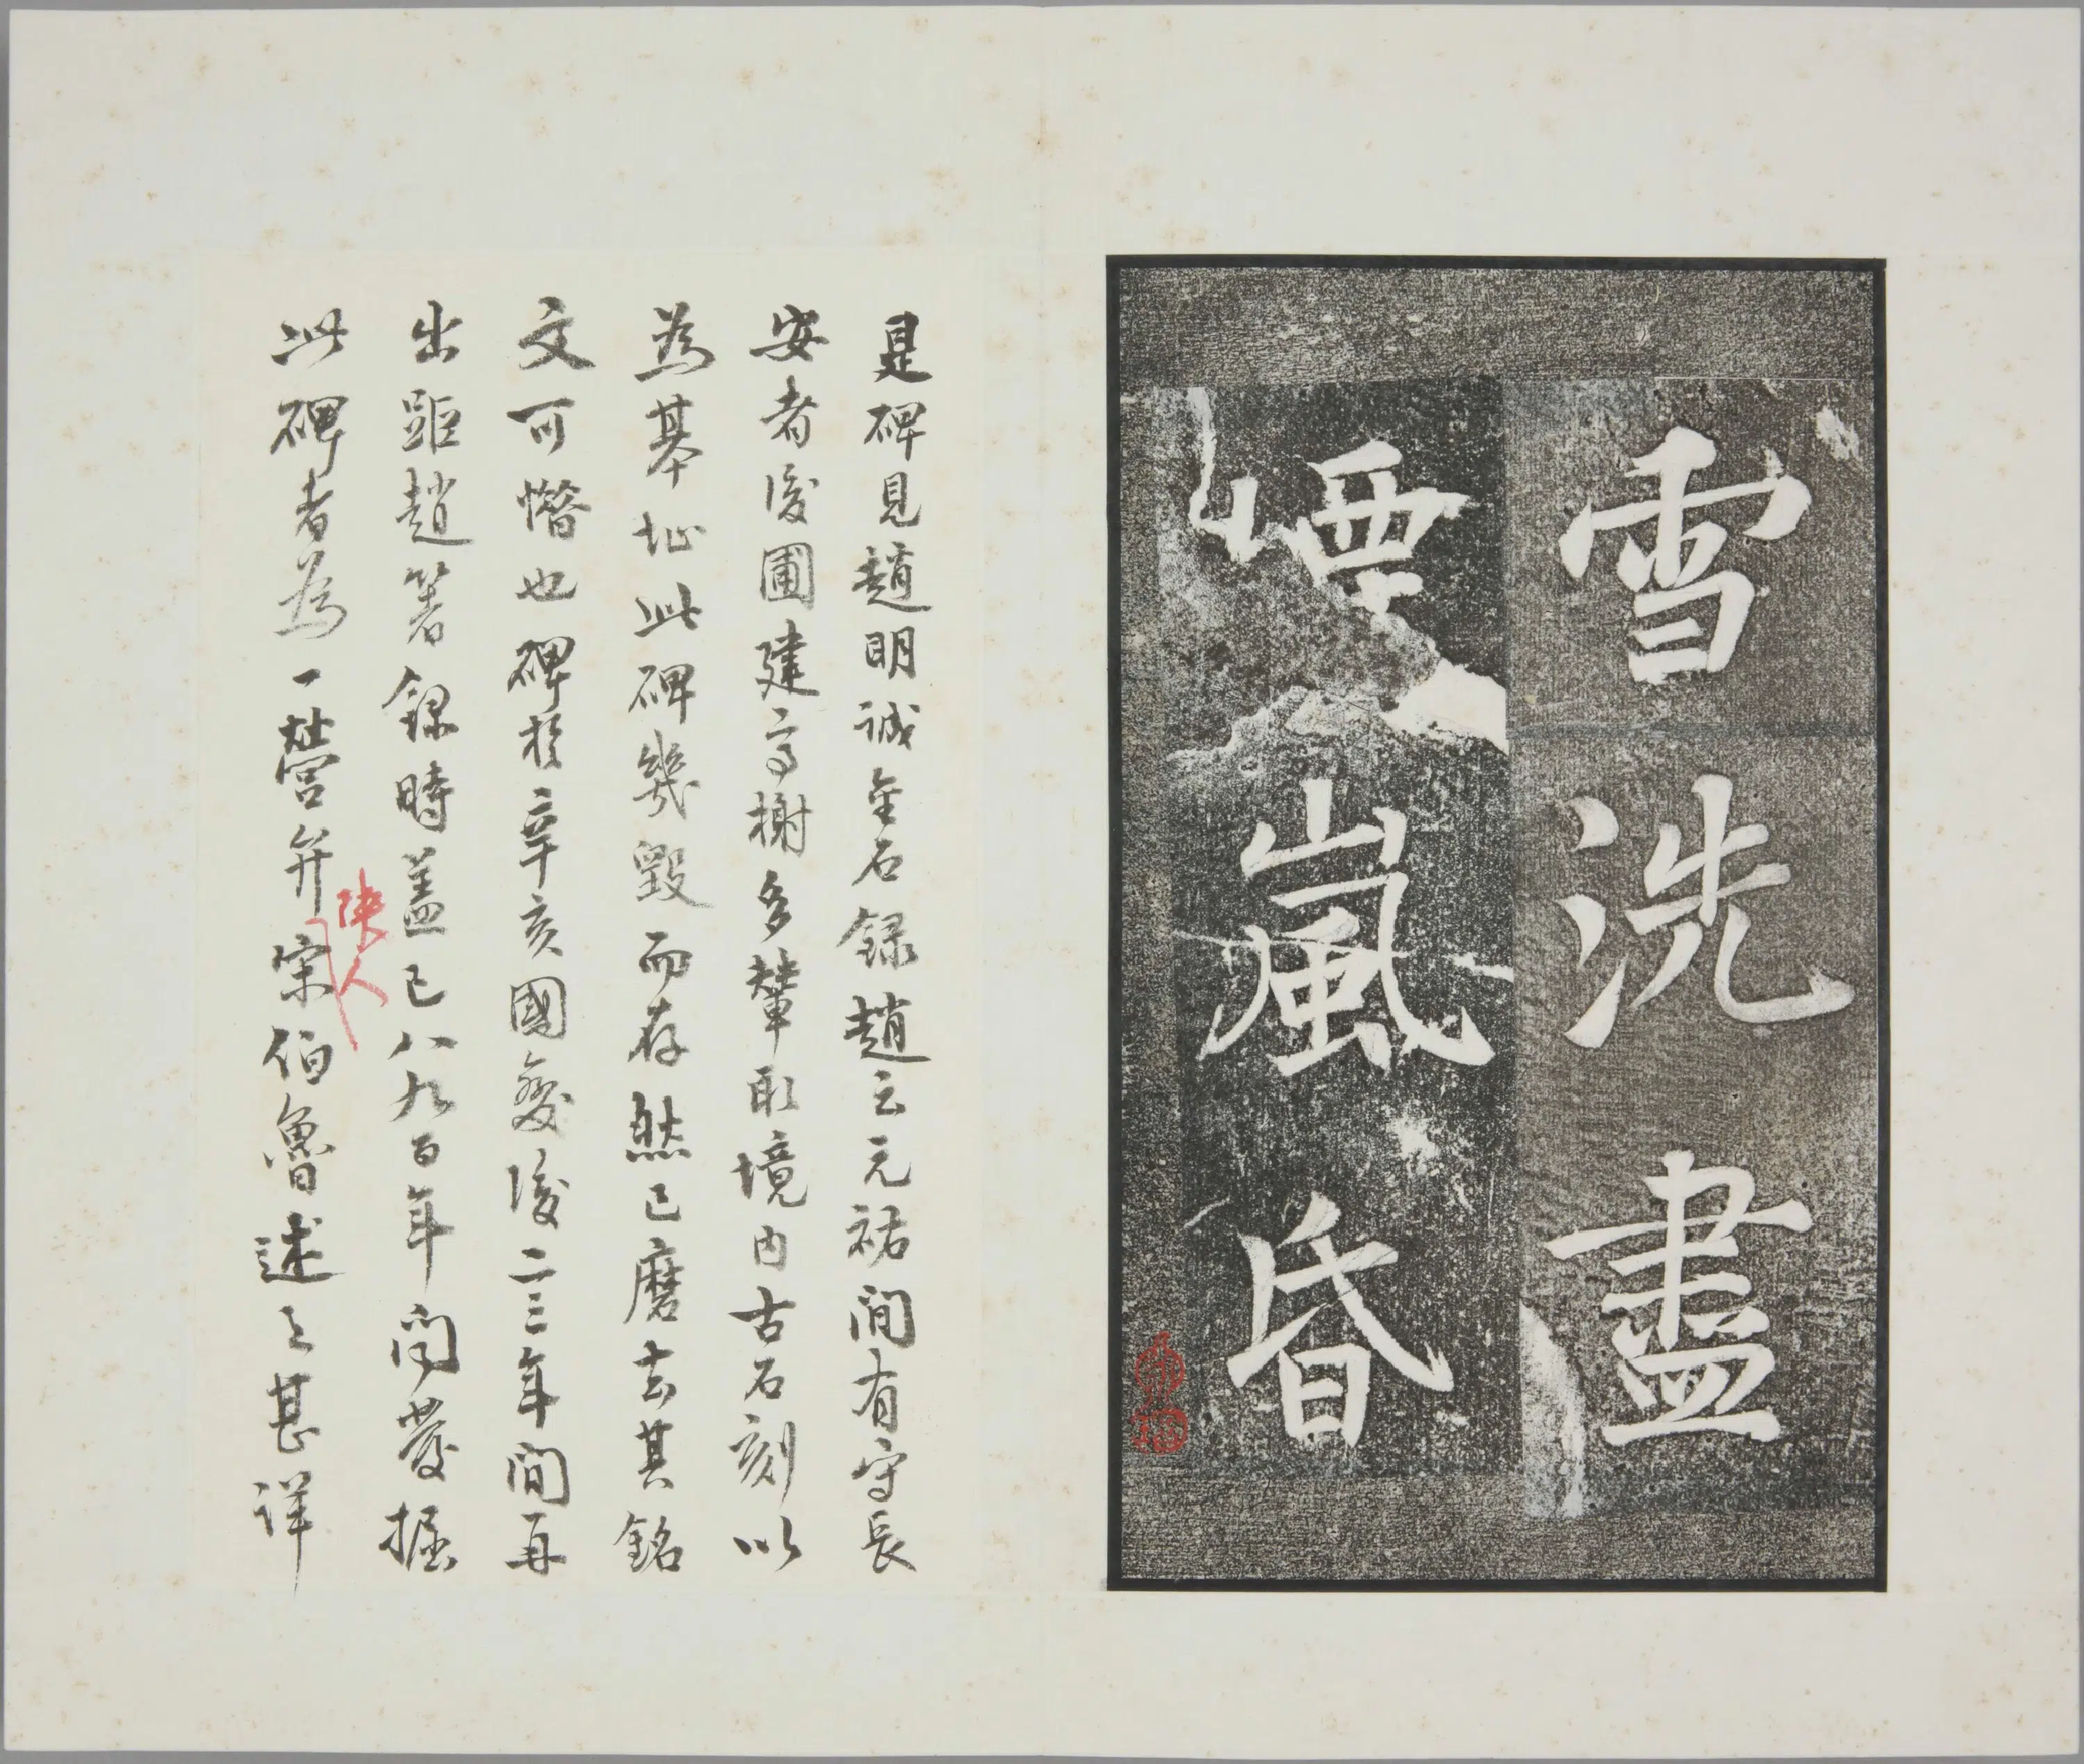 雪洗盡
煙嵐昏
是碑見趙明誠金石錄趙云元祐間有守長
安者後圃建亭榭多輦取境内古石刻以
為基址此碑幾毀而存然已磨去其銘
文可憯也碑於辛亥國變後二三年間再
出距趙箸錄時蓋已八九百年間發掘
此碑者為一營弁陝人宋伯魯述之甚詳